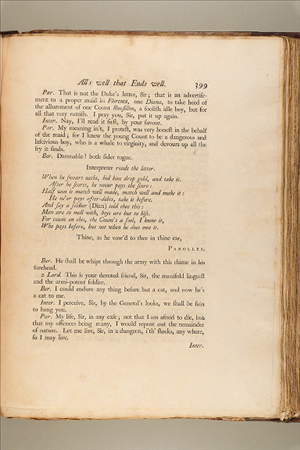 All's well that Ends well.
399
Par. That is not the Duke's letter, Sir; that is an advertise-
ment to a proper maid in Florence, one Diana, to take heed of
the allurement of one Count Rousillon, a foolish idle boy, but for
all that very ruttish. I pray you, Sir, put it up again.
Inter. Nay, I'll read it first, by your favour.
Par. My meaning in't, I protest, was very honest in the behalf
of the maid; for I knew the young Count to be a dangerous and
lascivious boy, who is a whale to virginity, and devours up all the
fry it finds.
Ber. Damnable! both sides rogue.
Interpreter reads the letter.
When he swears oaths, bid him drop gold, and take it.
After he scores, he never pays the score:
Half won is match well made, match well and make it:
He ne'er pays after-debts, take it before.
And say a soldier (Dian) told thee this:
Men are to mell with, boys are but to kiss.
For count on this, the Count's a fool, I know it,
Who pays before, but not when he does owe it.
Thine, as he vow'd to thee in thine ear,
PAROLLES.
Ber. He shall be whipt through the army with this rhime in his
forehead.
2 Lord. This is your devoted friend, Sir, the manifold linguist
and the armi-potent soldier.
Ber. I could endure any thing before but a cat, and now he's
a cat to me.
Inter. I perceive, Sir, by the General's looks, we shall be fain
to hang you.
Par. My life, Sir, in any case; not that I am afraid to die, but
that my offences being many, I would repent out the remainder
of nature. Let me live, Sir, in a dungeon, i'th' stocks, any where,
so I may live.
Inter.